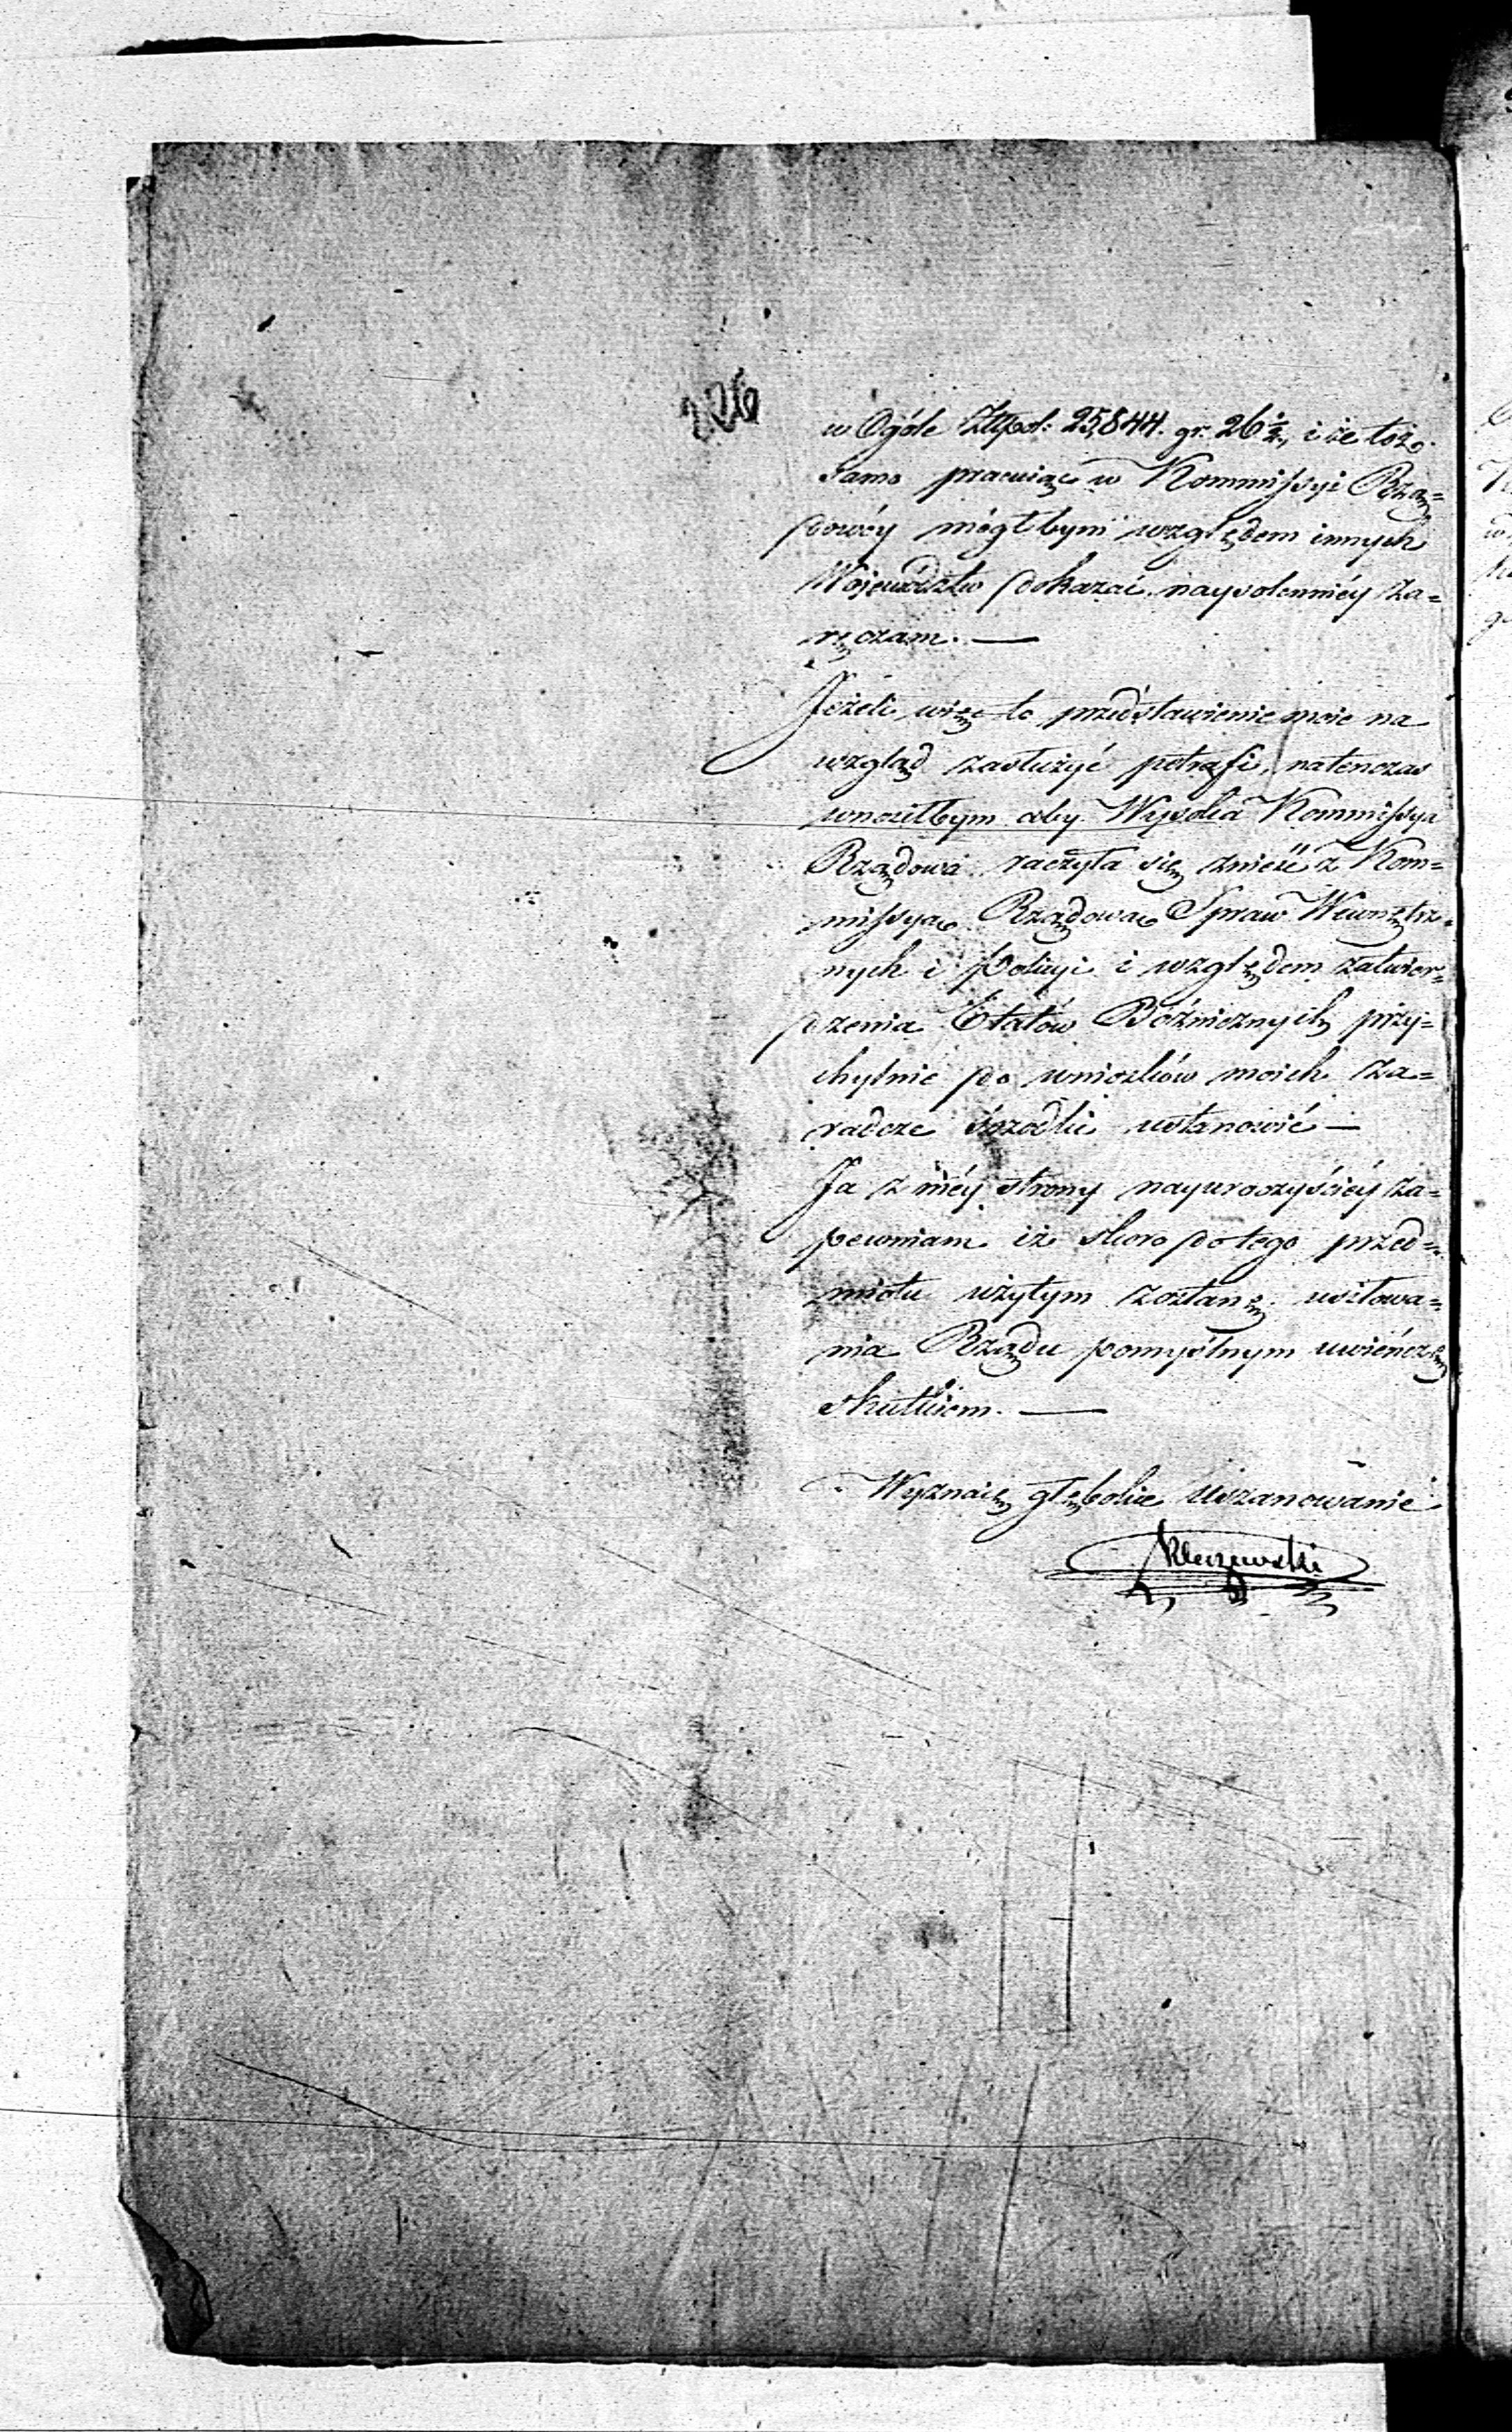 226
w Ogóle Złtpol: 25,844. gr. 26 ½, i że toż
samo pracuiąc w Kommissyi Rzą=
dowéy mógłbym względem innych
Województw dokazać nayso­lenniéy za=
ręczam. —
Jeżeli więc to przedstawienie moie na
wzgląd zasłużyć potrafi, natenczas
wnosiłbym aby Wysoka Kommissya
Rządowa raczyła się znieść z Kom=
missyą Rządową Spraw Wewnętrz=
nych i Policyi i względem zatwier=
dzenia Etatów Bóźnicznych przy=
chylnie do wniosków moich za=
radcze środki ustanowić —
Ja z méy strony nayuroczyściéy za=
pewniam iż skoro do tego przed=
miotu użytym zostanę, usiłowa=
nia Rządu pomyślnym uwieńczę
skutkiem. —
Wyznaię głębokie Uszanowanie